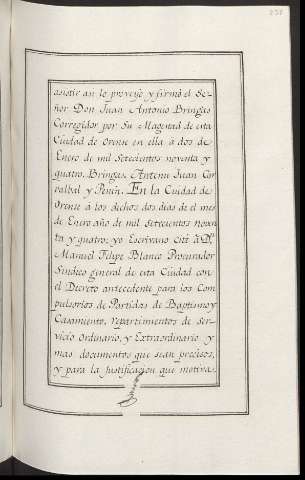 asistir asi lo proveyo y firmó el Se-
ñor Don Juan Antonio Bringas
Corregidor por Su Magestad de esta
Ciudad de Orense en ella a dos de
Enero de mil setecientos noventa y
quatro. Bringas. Antemi Juan Cor
ralbal y Penin. En la Ciudad de
Orense á los dichos dos dias de el mes
de Enero año de mil setecientos noven
ta y quatro: yo Escrivano cité á Dn.
Manuel Felipe Blanco Procurador
Sindico general de esta Ciudad con
el Decreto antecedente para los Com
pulsorios de Partidas de Baptismo y
Casamiento, repartimientos de Ser-
vicio Ordinario, y Extraordinario y
mas documentos que sean precisos,
y para la Justificacion que motiva,